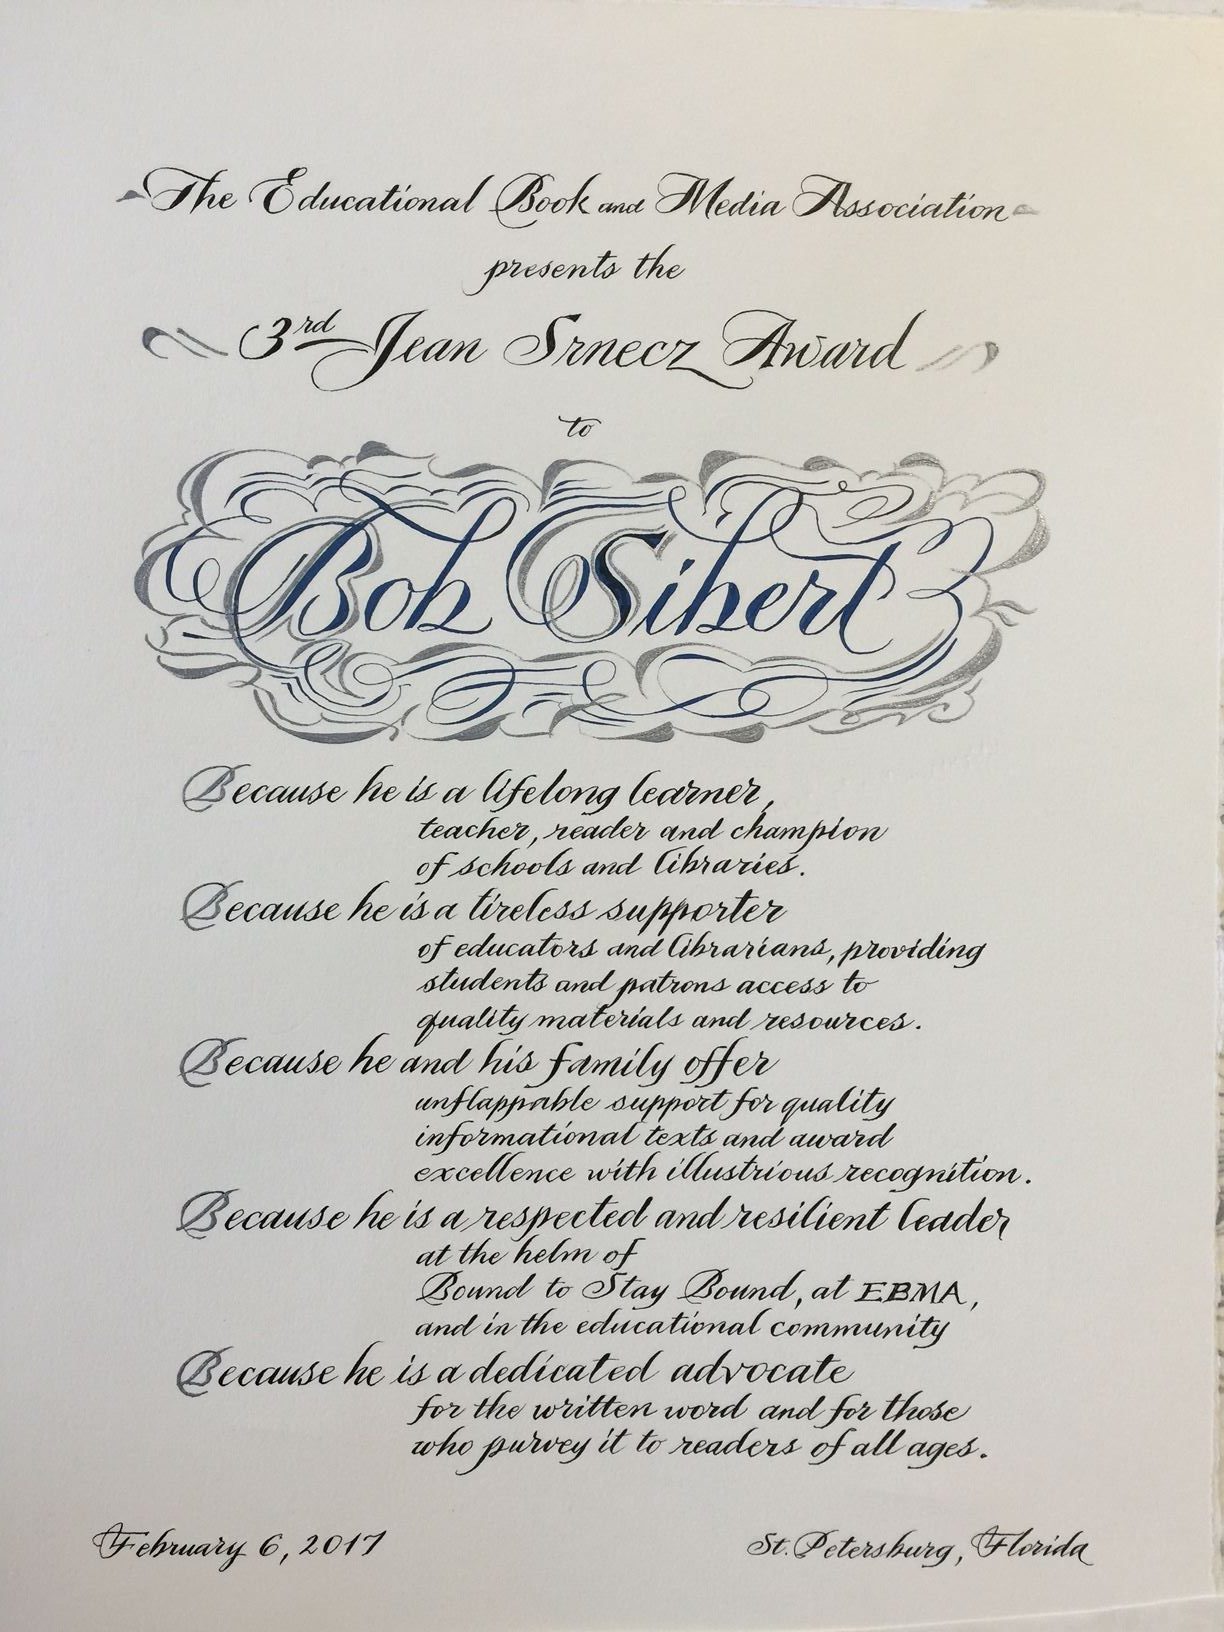 The Educational Book and Media Association
presents the
3rd Jean Srnecz Award
to
Bob Sibert
Because he is a lifelong learner,
teacher, reader and champion
of schools and libraries.
Because he is a tireless supporter
of educators and librarians, providing
students and patrons access to
quality materials and resources.
Because he and his family offer
unflappable support for quality
informational texts and award
excellence with illustrious recognition.
Because he is a respected and resilient leader
at the helm of
Bound to Stay Bound, at EBMA,
and in the educational community
Because he is a dedicated advocate
for the written word and for those
who purvey it to readers of all ages.
February 6, 2017
St. Petersburg, Florida